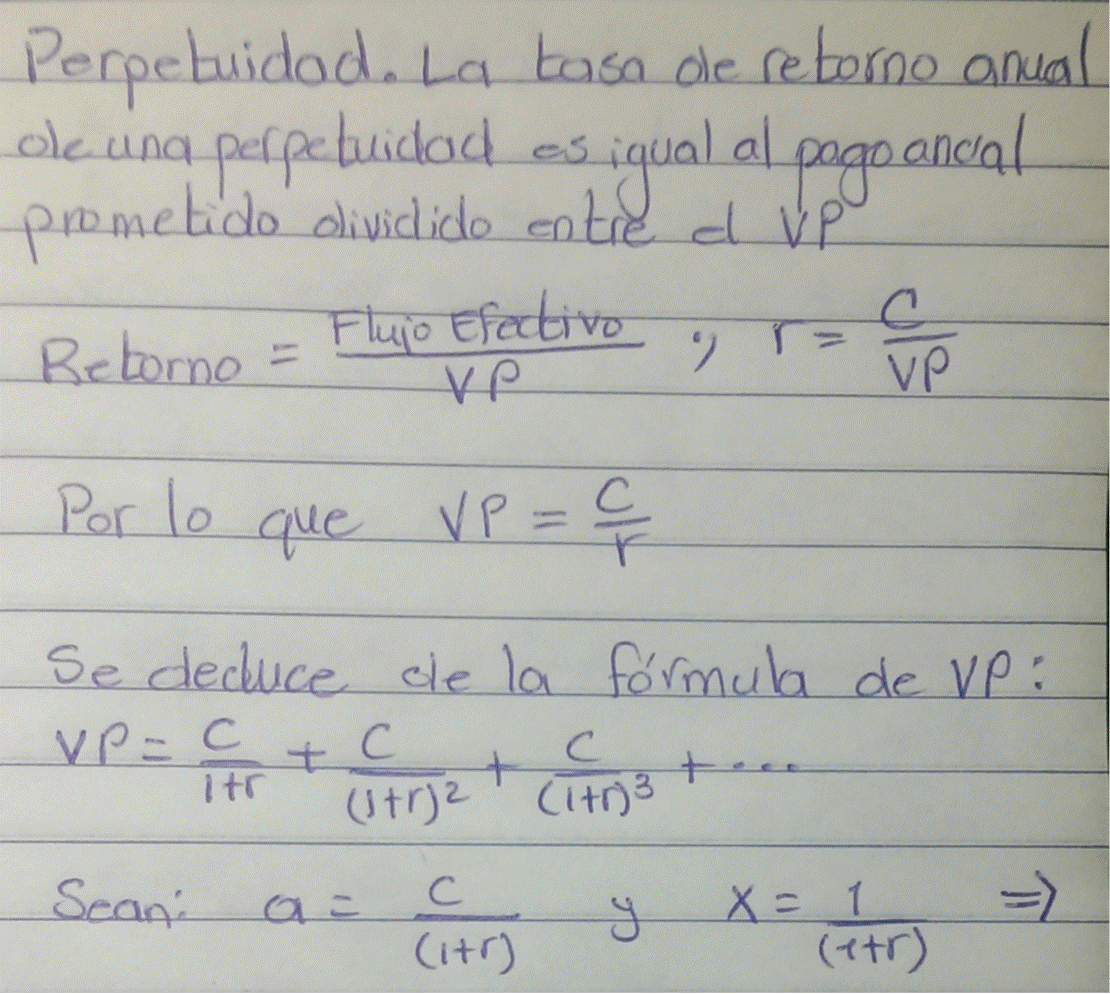 Perpetuidad. La tasa de retorno anual
de una perpetuidad es igual al pago anual
prometido dividido entre el VP
Retorno = Flujo Efectivo / VP ; r = C / VP
Por lo que VP = C / r
Se deduce de la fórmula de VP:
VP = C / 1+r + C / (1+r)² + C / (1+r)³ + ...
Sean: a = C / (1+r) y x = 1 / (1+r) ⇒